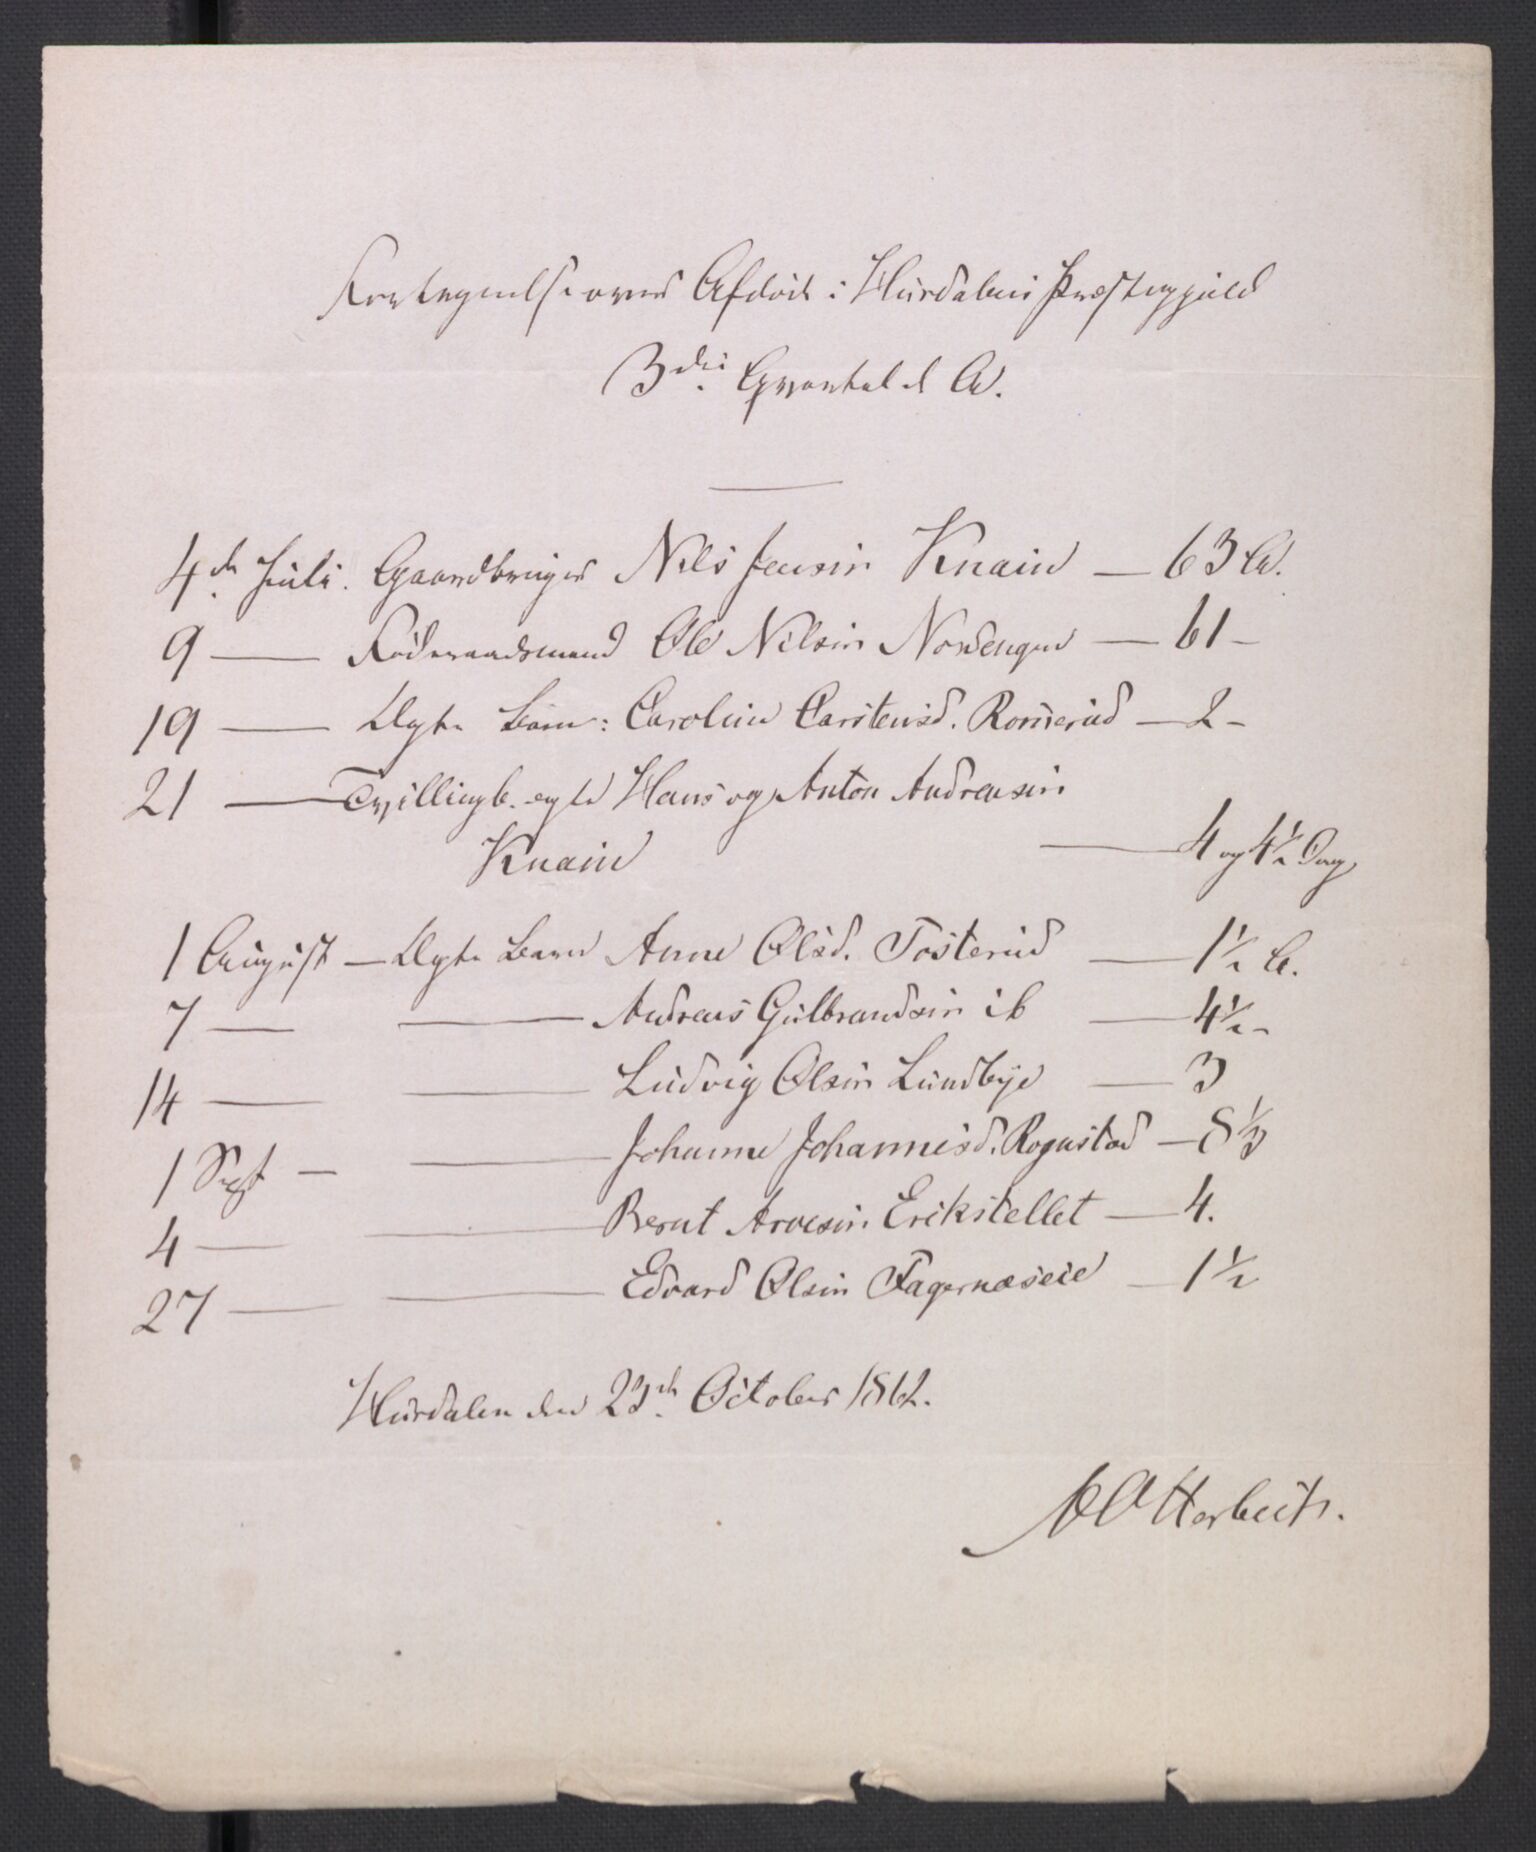 Fortegnelse over Afdøde i Hurdalens Præstegjeld
3die Qvartal d. A.
4de Juli. Gaardbruger Nils Jensen Knain — 63 A.
9 — Föderaadsmand Ole Nilsen Nordengen — 61 –
19 — Ægte Barn: Caroline Carstensd. Rosserud — 2 –
21 — Tvillingb. ægte Hans og Anton Andreasen
Knain — 4 og 4½ Dag
1 August — Ægte Barn Anne Olsd. Tosterud — 1½ A.
7 — — Andreas Gulbrandsen ib — 4½ –
14 — — Ludvig Olsen Lundbye — 3
1 Sept — — Johanne Johannesd. Rognstad — 8⅓
4 — — Bernt Arvesen Erikstellet — 4.
27 — — Edvard Olsen Fagernæseie — 1½
Hurdalen den 23de October 1862.
Otterbech.